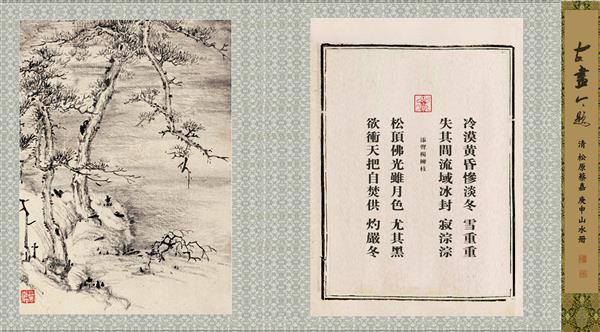 古畫今題
清 松原蔡嘉 庚申山水冊
冷漠黃昏慘淡冬 雪重重
失其間流域冰封 寂淙淙
添聲楊柳枝
松頂佛光雖月色 尤其黑
欲衝天把自焚供 灼嚴冬